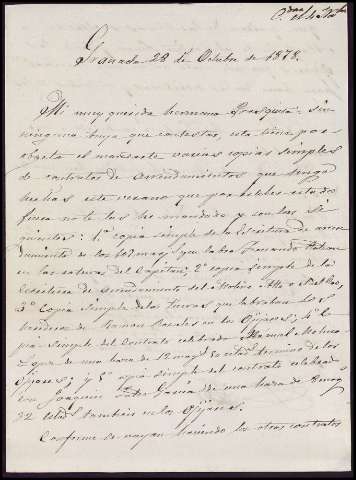 Granada 28 de Octubre de 1878.
Mi muy querida hermana Frasquita: sin
ninguna tuya que contestar, esta tiene por
objeto el mandarte varias copias simples
de contratos de arrendamientos que tengo
hechas este verano que por
no te las he mandado y son las si
guientes: 1ª copia simple de la Escritura de arren
damiento de los que labra Fernando
en las del Capitan; 2ª copia simple de la
Escritura de arrendamiento del Molino Alto
3ª Copia simple de las tierras que labraban los
herederos de en los Ojijares; 4ª Co
pia simple del contrato celebrado Manuel Molina
de una haza de 12 término de los
Ojijares; y 5ª copia simple del contrato celebrado
con Joaquin García de una haza de
22 tambien en los Ojijares.
Conforme se vayan haciendo los otros contratos